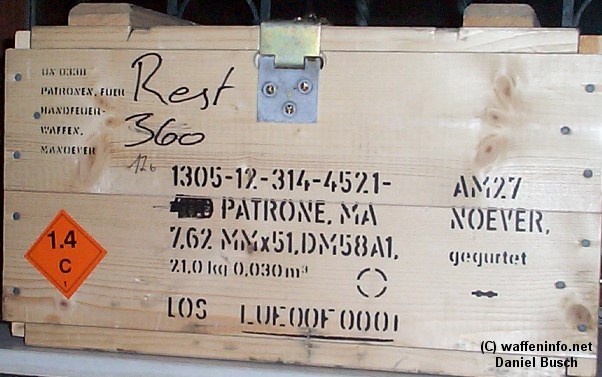 UN 0338
PATRONEN, FUER
HANDFEUER-
WAFFEN,
MANOEVER
Rest
360
126
1305-12-314-4521-AM27
PATRONE, MANOEVER,
7,62 MMx51,DM58A1, gegurtet
21.0 kg 0,030 m³
LOS LUE00F0001
1.4
C
1
(C) waffeninfo.net
Daniel Busch